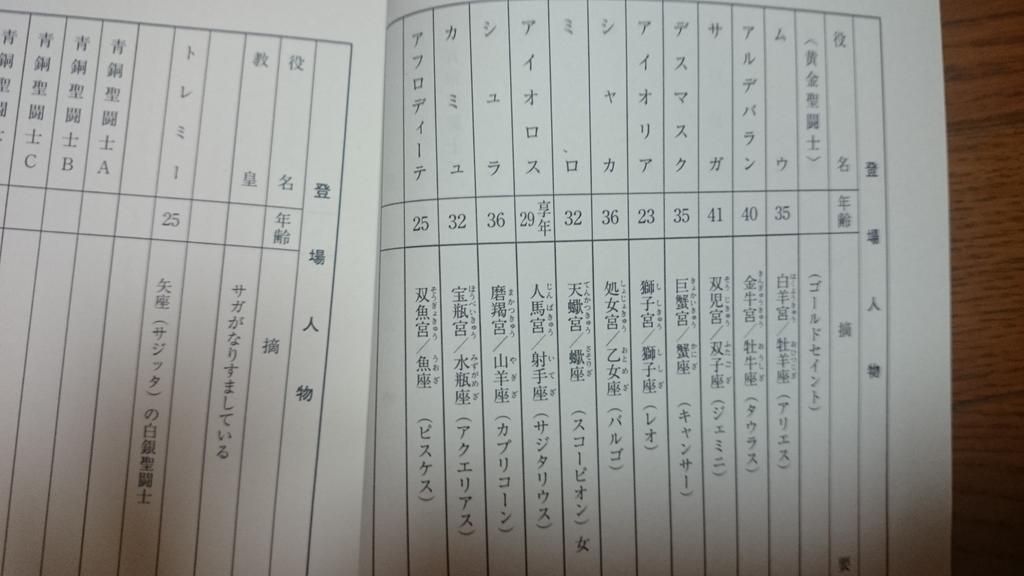 登場人物
役名 年齢 摘要
〈黄金聖闘士〉 (ゴールドセイント)
ムウ 35 白羊宮／牡羊座 (アリエス)
アルデバラン 40 金牛宮／牡牛座 (タウラス)
サガ 41 双児宮／双子座 (ジェミニ)
デスマスク 35 巨蟹宮／蟹座 (キャンサー)
アイオリア 23 獅子宮／獅子座 (レオ)
シャカ 36 処女宮／乙女座 (バルゴ)
ミロ 32 天蠍宮／蠍座 (スコーピオン) 女
アイオロス 享年29 人馬宮／射手座 (サジタリウス)
シュラ 36 磨羯宮／山羊座 (カプリコーン)
カミュ 32 宝瓶宮／水瓶座 (アクエリアス)
アフロディーテ 25 双魚宮／魚座 (ピスケス)
登場人物
役名 年齢 摘
教皇 サガがなりすましている
トレミー 25 矢座 (サジッタ) の白銀聖闘士
青銅聖闘士A
青銅聖闘士B
青銅聖闘士C
青銅聖闘士